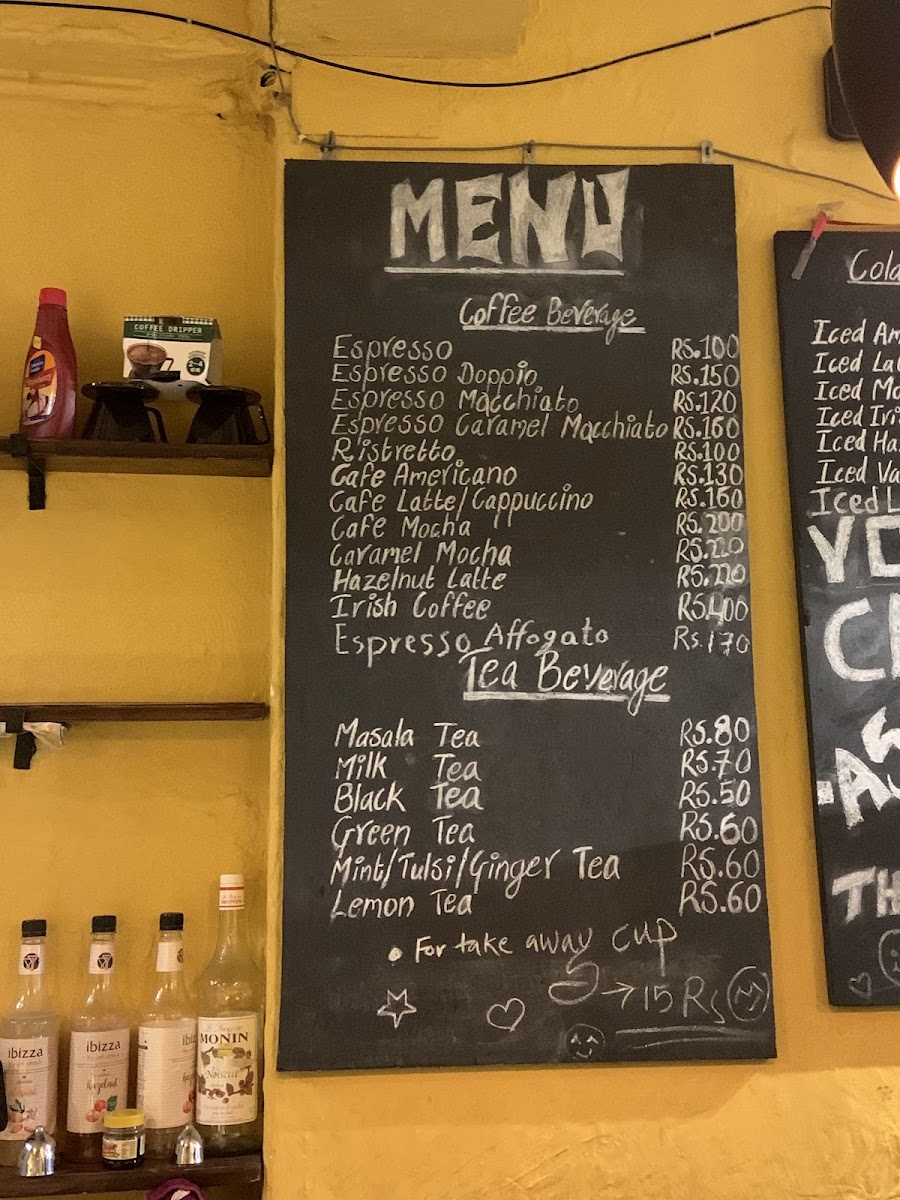 COFFEE DRIPPER
MENU
Coffee Beverage
Espresso RS.100
Espresso Doppio RS.150
Espresso Macchiato RS.120
Espresso Caramel Macchiato RS.160
Ristretto RS.100
Cafe Americano RS.130
Cafe Latte/Cappuccino RS.160
Cafe Mocha RS.200
Caramel Mocha RS.220
Hazelnut Latte RS.220
Irish Coffee RS.400
Espresso Affogato Rs.170
Tea Beverage
Masala Tea RS.80
Milk Tea RS.70
Black Tea RS.50
Green Tea RS.60
Mint/Tulsi/Ginger Tea RS.60
Lemon Tea RS.60
For take away cup
→15 Rs
Iced
Iced
Iced
Iced
Iced
Iced
Iced
ibizza
ibizza
hazelnut
MONIN
Noisette